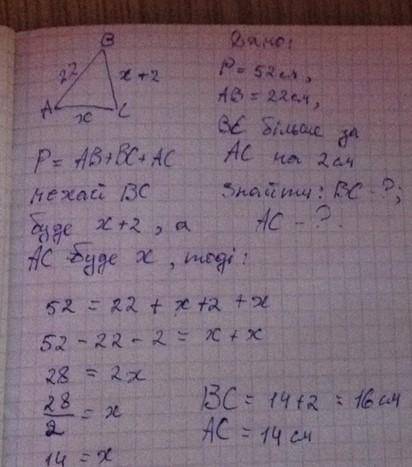 B
22
x+2
A
x
C
Дано:
P = 52 см,
AB = 22 см,
BC більше за
AC на 2 см
Знайти: BC - ?;
AC - ?.
P = AB+BC+AC
нехай BC
буде x+2, а
AC буде x, тоді:
52 = 22 + x+2 +x
52 - 22 - 2 = x + x
28 = 2x
28/2 = x
14 = x
BC = 14+2 = 16 см
AC = 14 см